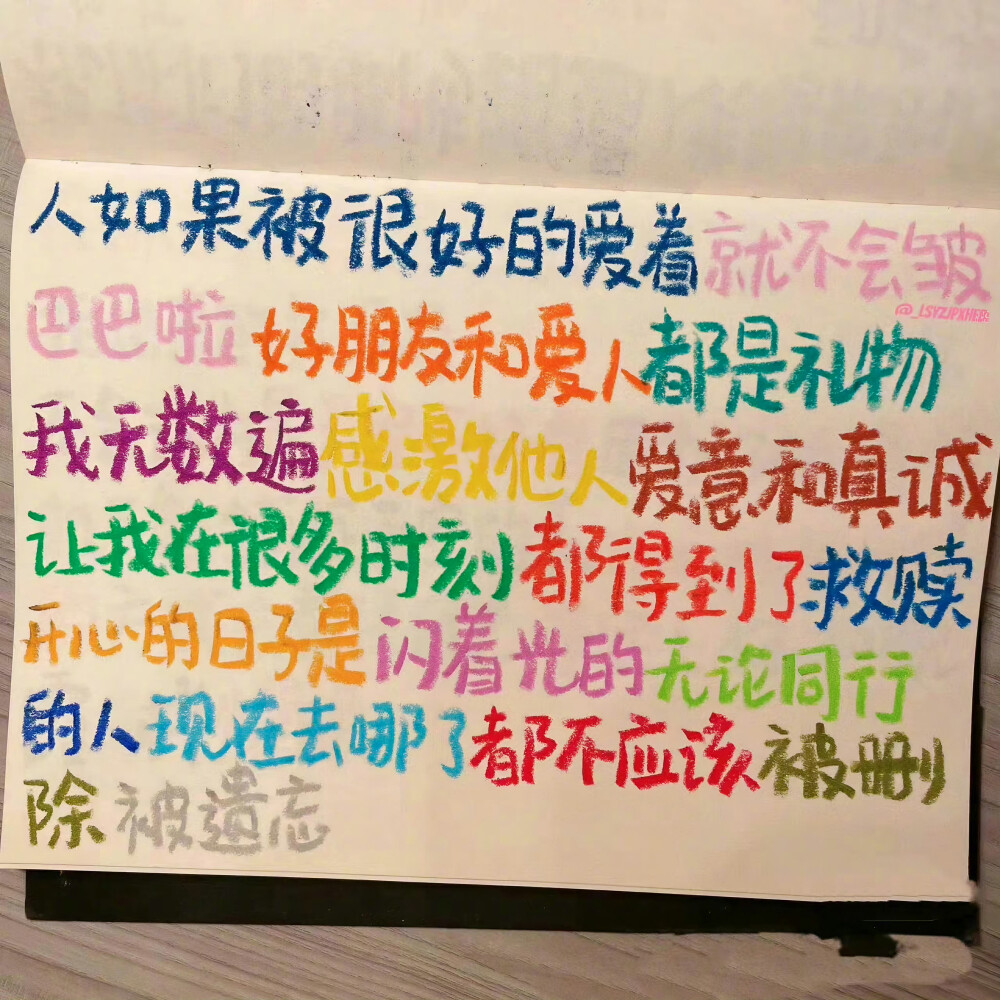 人如果被很好的爱着就不会皱
@_LSYZJPXHEB:
巴巴啦好朋友和爱人都是礼物
我无数遍感激他人爱意和真诚
让我在很多时刻都得到了救赎
开心的日子是闪着光的无论同行
的人现在去哪了都不应该被删
除被遗忘